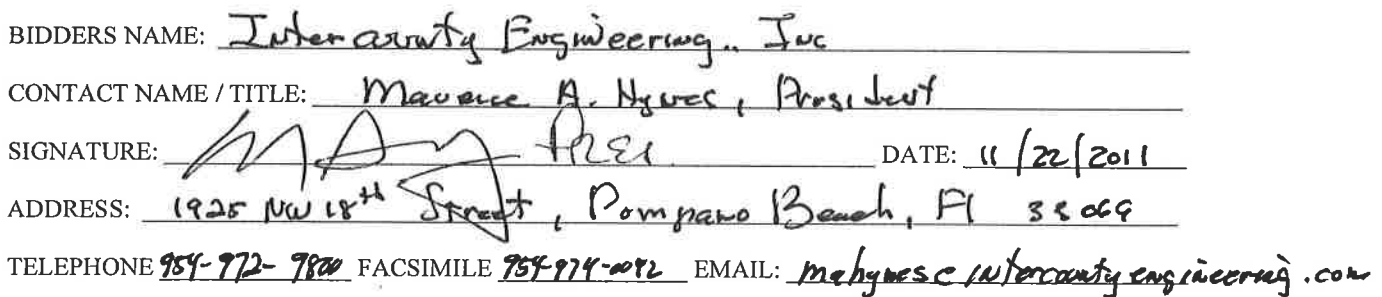 BIDDERS NAME: Intercounty Engineering., Inc
CONTACT NAME / TITLE: Maurice A. Hynes, President
SIGNATURE: Pres. DATE: 11/22/2011
ADDRESS: 1925 NW 18th Street, Pompano Beach, Fl 33069
TELEPHONE 954-972-9800 FACSIMILE 954-974-0042 EMAIL: mahynes@intercountyengineering.com